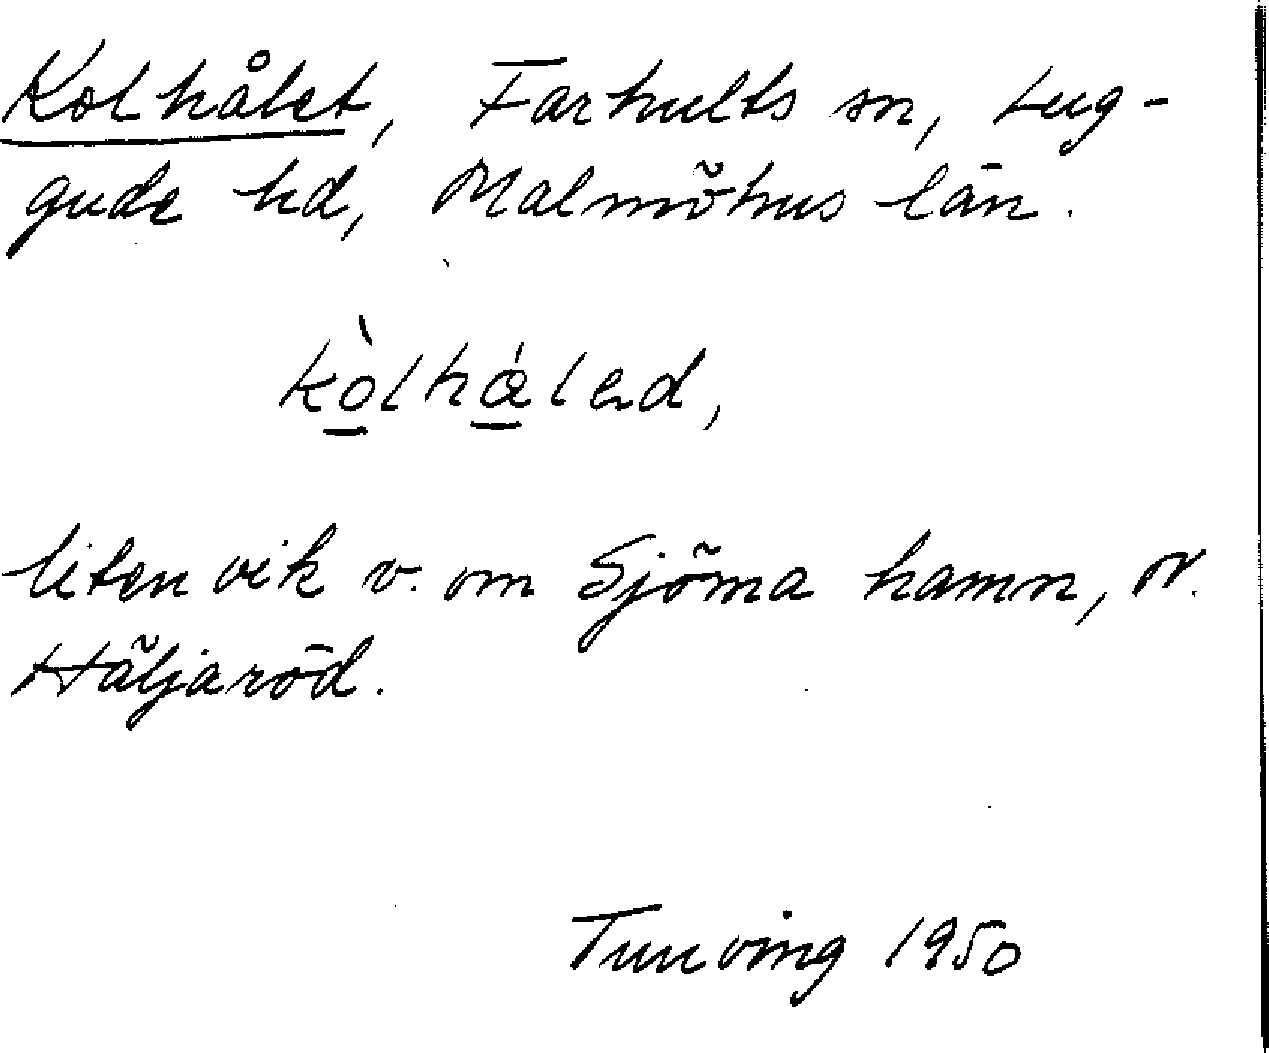 Kolhålet, Farhults sn, Lug-
gude hd, Malmöhus län.
kòlhǻled,
liten vik v. om Sjöma hamn, N.
Häljaröd.
Tunving 1950